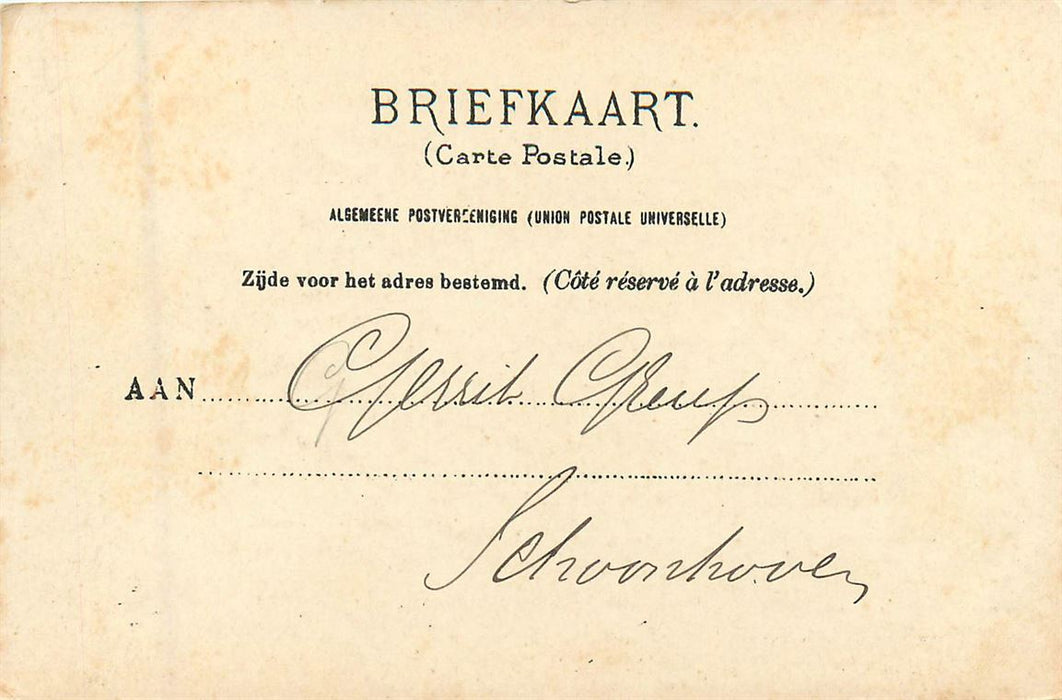 BRIEFKAART.
(Carte Postale.)
ALGEMEENE POSTVEREENIGING (UNION POSTALE UNIVERSELLE)
Zijde voor het adres bestemd. (Côté réservé à l'adresse.)
AAN Gerrit Greup
Schoonhoven